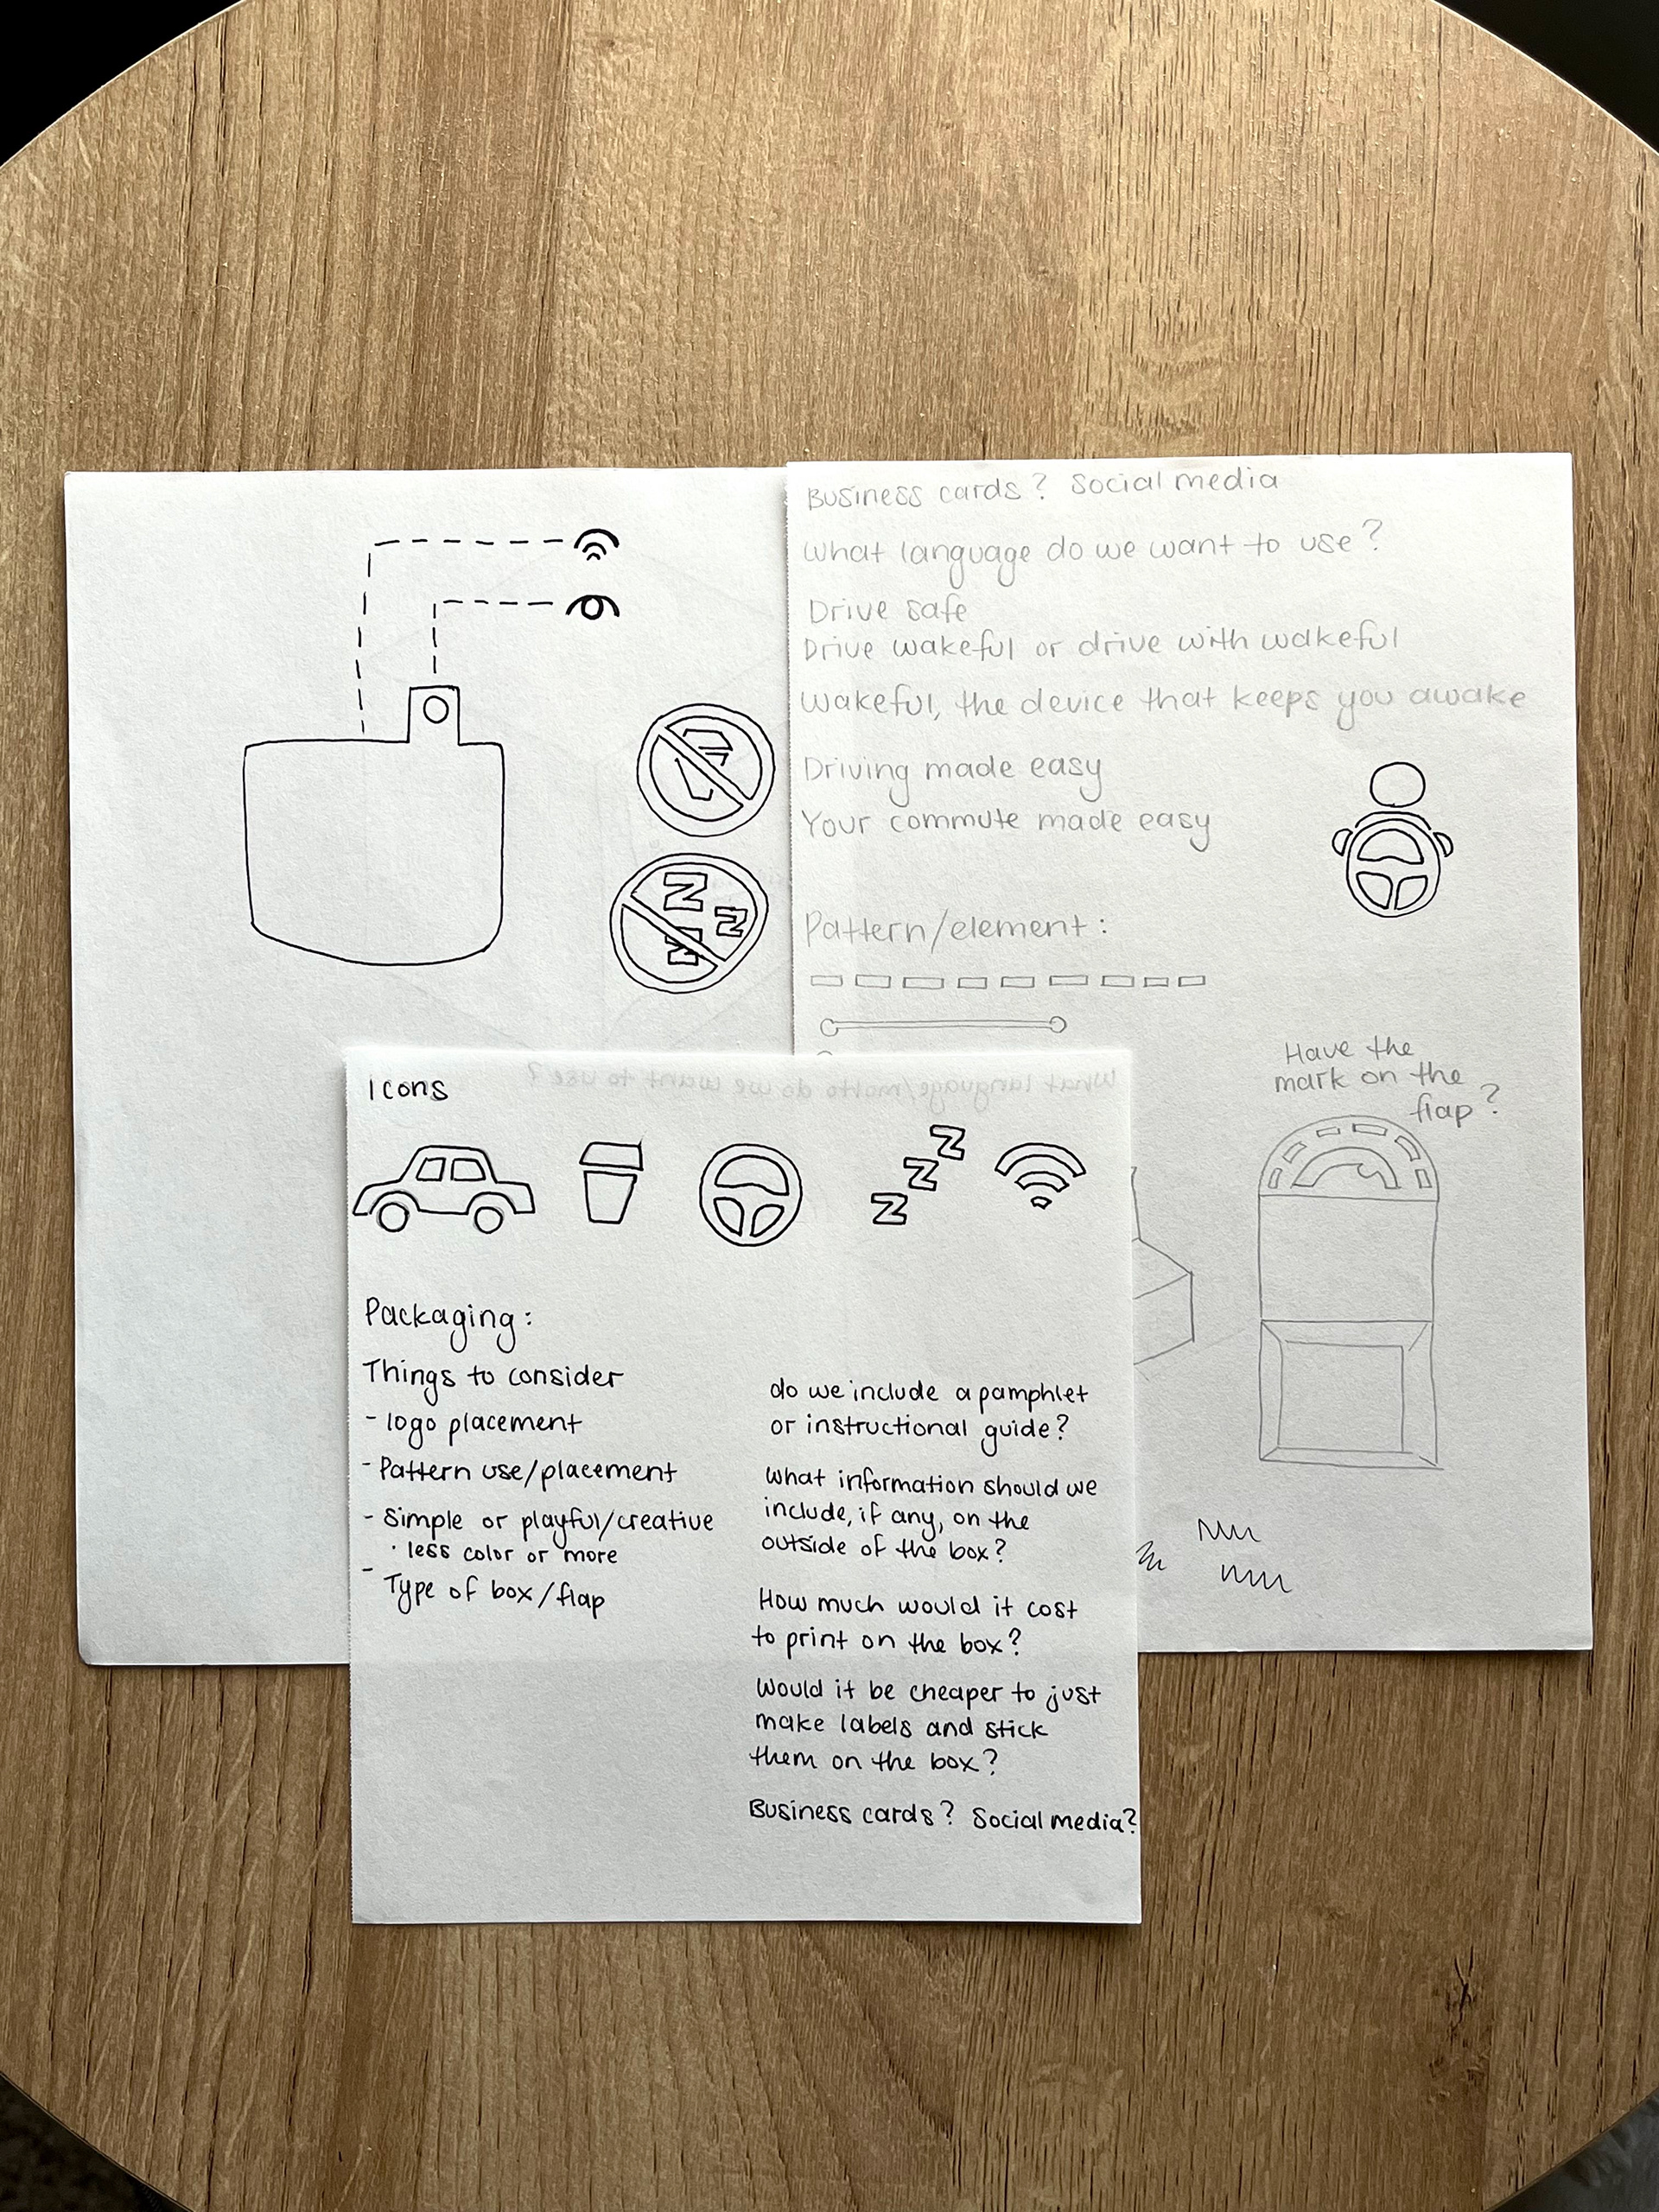 Business cards? Social media
What language do we want to use?
Drive safe
Drive wakeful or drive with wakeful
Wakeful, the device that keeps you awake
Driving made easy
Your commute made easy
Pattern/element:
Have the
mark on the
flap?
Z
Z
Z
What language/motto do we want to use?
Icons
Z
Z
Z
Packaging:
Things to consider
- logo placement
- Pattern use/placement
- Simple or playful/creative
· less color or more
- Type of box/flap
do we include a pamphlet
or instructional guide?
What information should we
include, if any, on the
outside of the box?
How much would it cost
to print on the box?
Would it be cheaper to just
make labels and stick
them on the box?
Business cards? Social media?